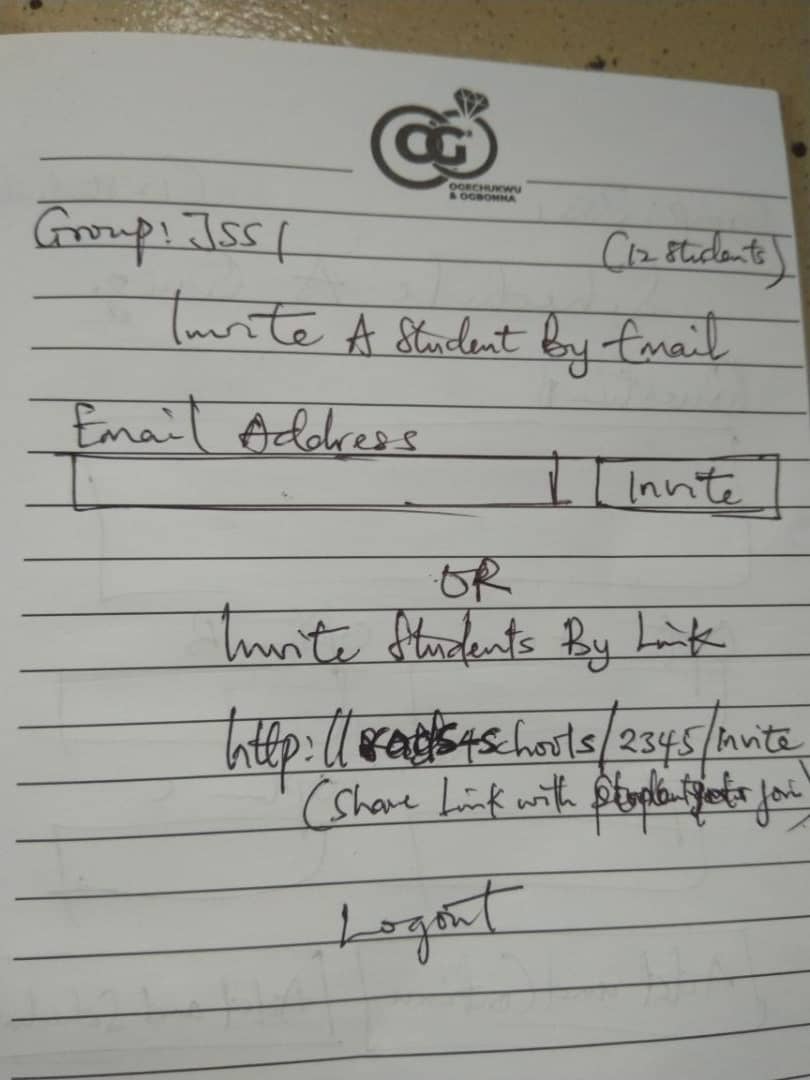 OG
OGECHUKWU
& OGBONNA
Group: JSS 1 (12 students)
Invite A Student By Email
Email Address
Invite
OR
Invite Students By Link
http:// schools/2345/Invite
(Share Link with
Logout